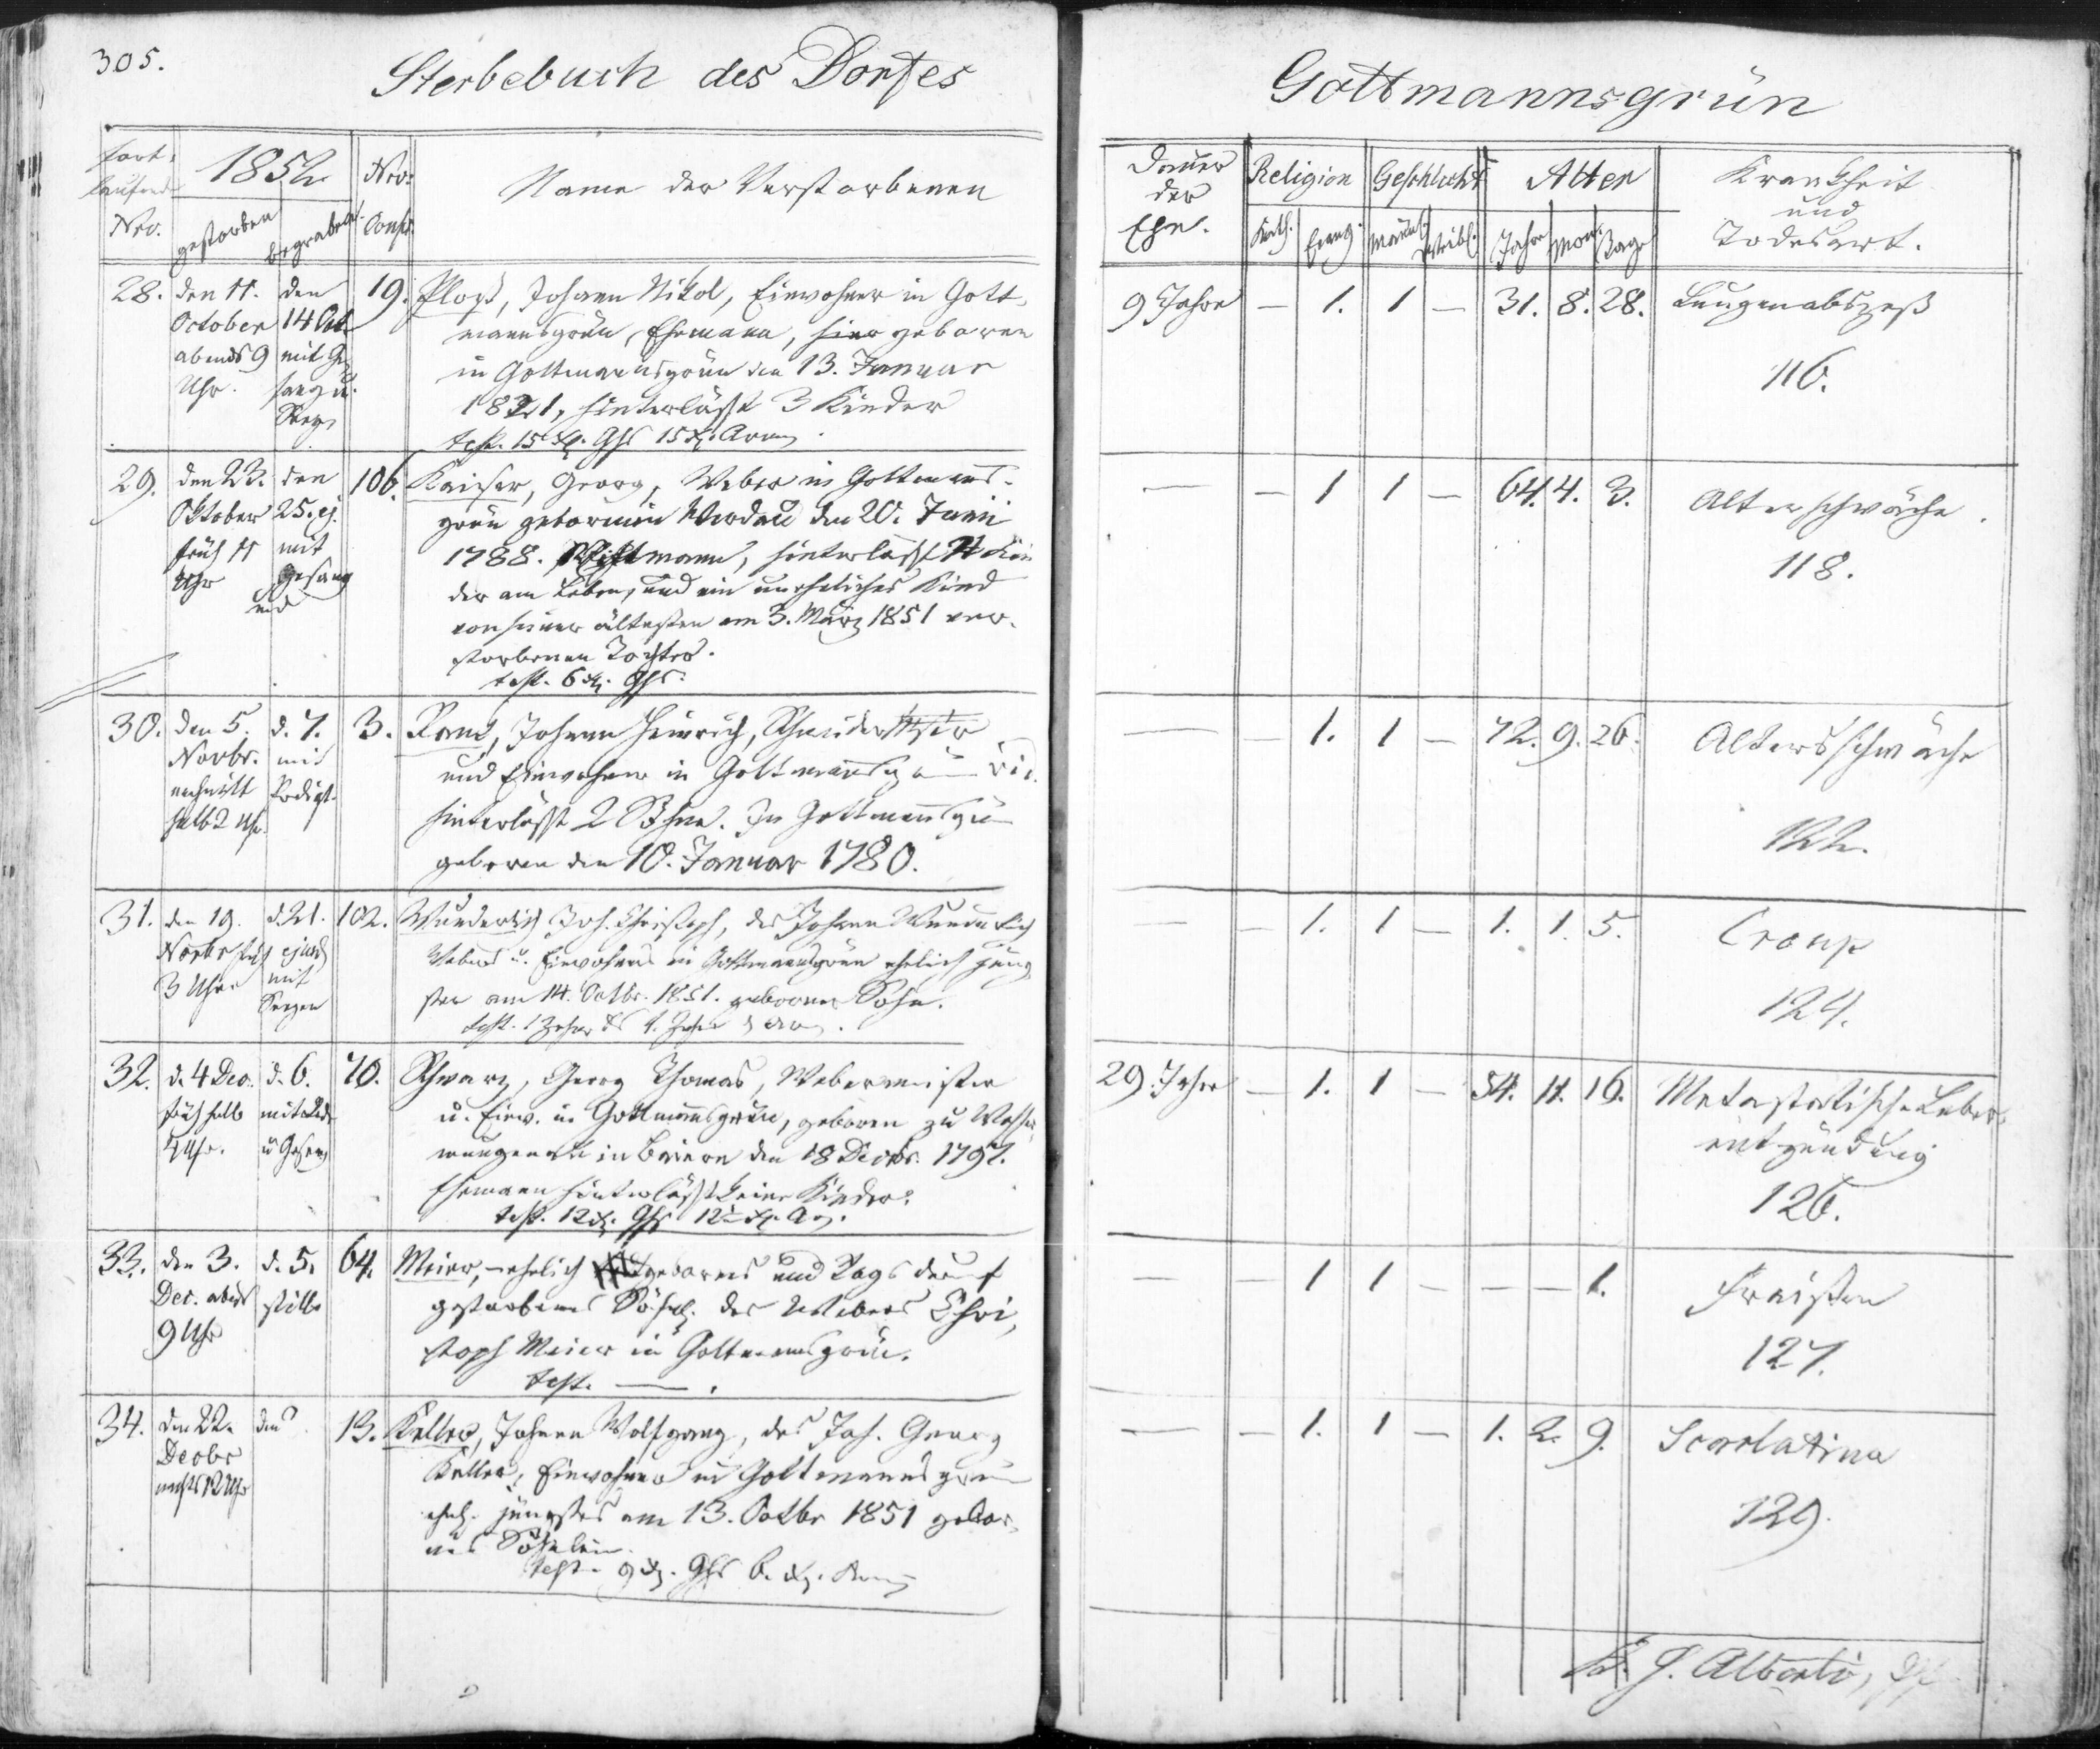 305.
Sterbebuch des Dorfes
Gottmannsgrün
fort-
laufende
Nro.
1852
gestorben
begraben
Nro:
Conscr.
Name der Verstorbenen
Dauer
der
Ehe.
Religion
Kath.
Evang.
Geschlecht
männl.
weibl.
Alter
Jahre
Mon.
Tage
Krankheit
und
Todesart.
28.
den 11.
October
abends 9
Uhr.
den
14 Oct
mit Ge-
sang u.
Seg.
19.
Ploss, Johann Nikol, Einwohner in Gott-
mannsgrün, Ehemann, hier geboren
in Gottmannsgrün den 13. Januar
1821, hinterläßt 3 Kinder
test. 15 x. Ghs 15 x. Arm.
9 Jahre
– 1. 1 – 31. 8. 28.
Lungenabszeß
116.
29.
den 23.
Oktober
früh 11
Uhr
den
25. ej.
mit
Gesang
und
106.
Kaiser, Georg, Weber in Gottmanns-
grün geboren in den 20. Juni
1788. Wittmann, hinterläßt Kin
der am Leben, und ein uneheliches Kind
von seiner ältesten am 3. März 1851 ver-
storbenen Tochter.
test. 6 x. Ghs.
— – 1 1 – 64. 4. 3.
Altersschwäche.
118.
30.
den 5.
Novbr.
nachmitt
halb 2 Uhr.
d. 7.
mit
Predigt.
3.
Johann Heinrich, Schneider
und Einwohner in Gottmannsgrün
hinterläßt 2 Söhne. In Gottmannsgrün
geboren den 10. Januar 1780.
— – 1. 1 – 72. 9. 26.
Altersschwäche
122.
31.
den 19.
Novbr früh
3 Uhr
d. 21.
ejusd
mit
Segen
102.
Wunderlich Joh. Christoph, des Johann Wunderlich
Webers u. Einwohners in Gottmannsgrün ehelich jüng-
ster am 14. Octbr. 1851. geborner Sohn.
— – 1. 1 – 1. 1. 5.
Croup
124.
32.
d. 4 Dec.
früh halb
Uhr.
d. 6.
mit Rede
u Gesang
70.
Schwarz, Georg Thomas, Webermeister
u. Einw. in Gottmannsgrün, geboren zu
in Baiern den 18 Decbr. 1797.
Ehemann hinterläßt keine Kinder.
test. 12 x. Ghs 12 x. Arm.
29. Jahre
– 1. 1 – 54. 11. 16.
Metastatische Leber-
entzündung
126.
33.
den 3.
Dec. abds
9 Uhr
d. 5.
stille
64.
Meier, ehelich gebornes und Tags darauf
gestorbenes Söhnl. des Webers Chri-
stoph Meier in Gottmannsgrün.
test. — .
— – 1 1 – – – 1.
Fraisen
127.
34.
den 22.
Decbr
nachts 12 Uhr
den
13.
Keller, Johann Wolfgang, des Joh. Georg
Keller, Einwohner in Gottmannsgrün
ehel. jüngstes am 13. Octbr 1851 gebor-
nes Söhnlein.
test. 9 x. Ghs 6. x. Arm
— – 1. 1 – 1. 2. 9.
Scarlatina
129.
J. Alberti, Pf.